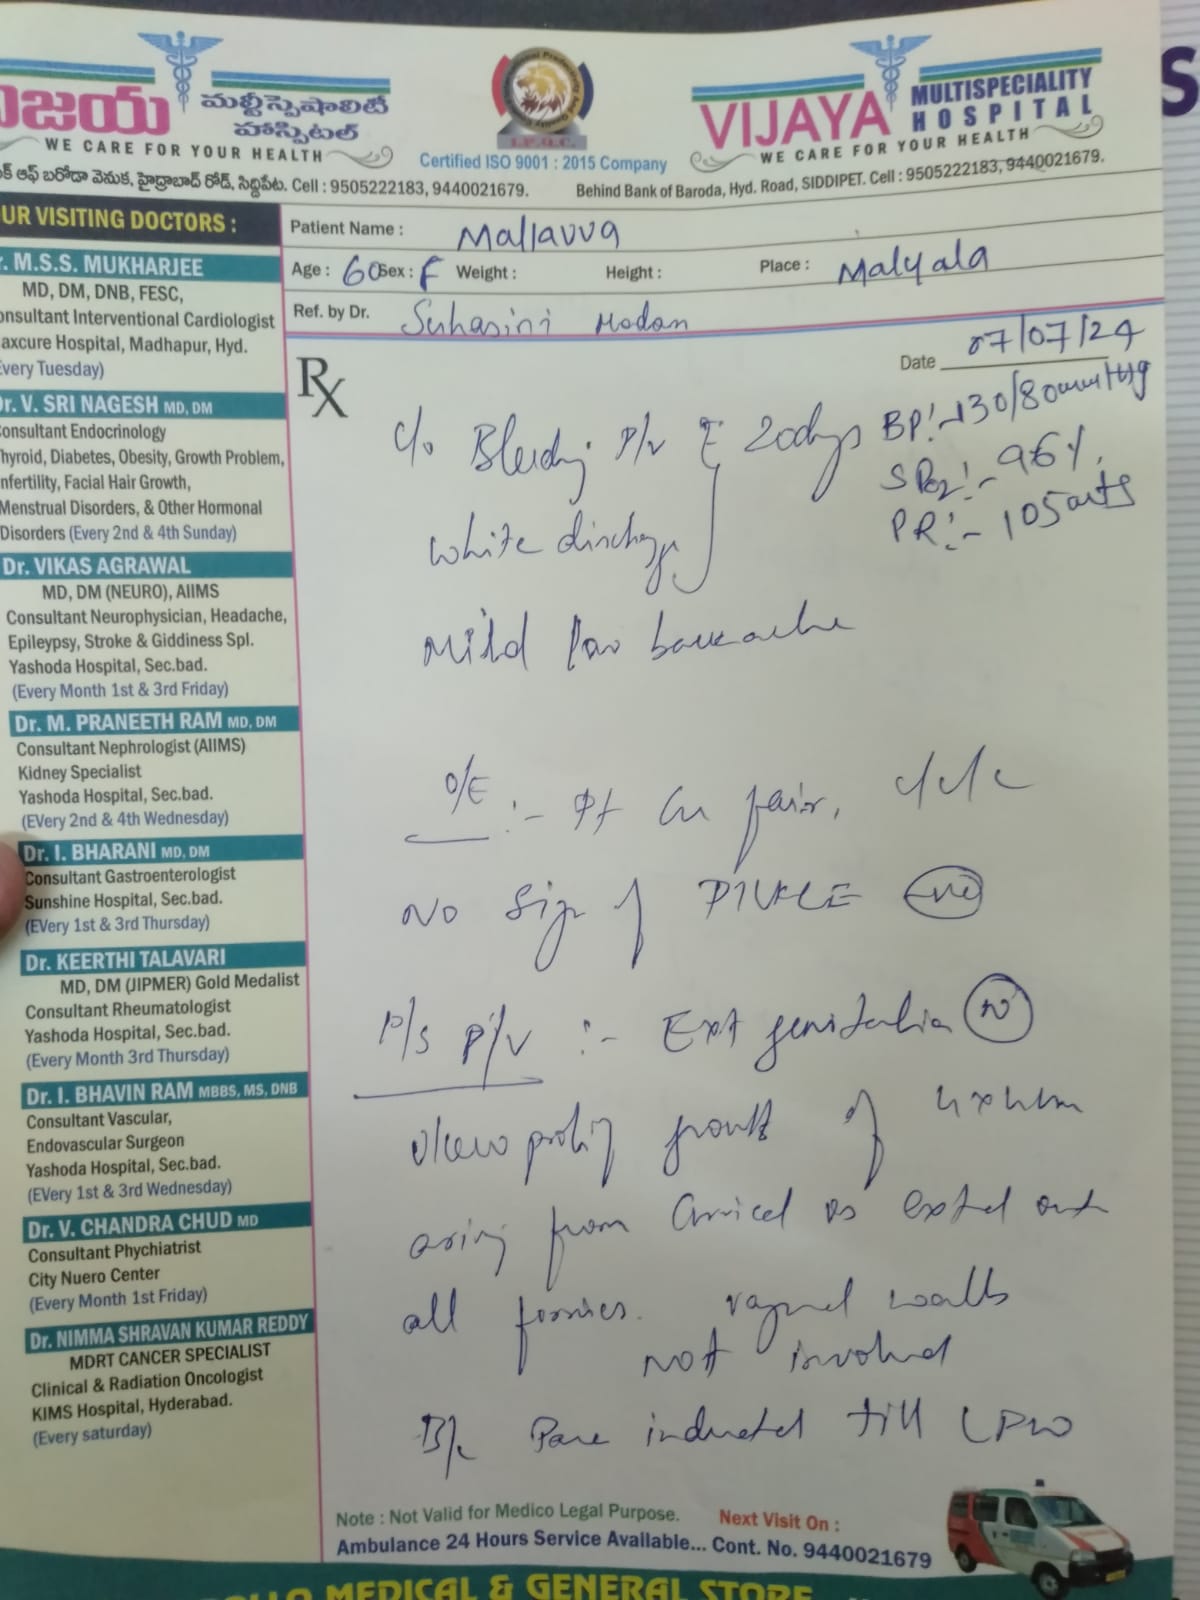 విజయ మల్టీస్పెషాలిటీ హాస్పిటల్
WE CARE FOR YOUR HEALTH
I.P.Q.C.
Certified ISO 9001 : 2015 Company
VIJAYA MULTISPECIALITY HOSPITAL
WE CARE FOR YOUR HEALTH
ఆఫ్ బరోడా వెనుక, హైద్రాబాద్ రోడ్, సిద్దిపేట. Cell : 9505222183, 9440021679.
Behind Bank of Baroda, Hyd. Road, SIDDIPET. Cell : 9505222183, 9440021679.
UR VISITING DOCTORS :
r. M.S.S. MUKHARJEE
MD, DM, DNB, FESC,
onsultant Interventional Cardiologist
axcure Hospital, Madhapur, Hyd.
very Tuesday)
r. V. SRI NAGESH MD, DM
onsultant Endocrinology
hyroid, Diabetes, Obesity, Growth Problem,
nfertility, Facial Hair Growth,
Menstrual Disorders, & Other Hormonal
Disorders (Every 2nd & 4th Sunday)
Dr. VIKAS AGRAWAL
MD, DM (NEURO), AIIMS
Consultant Neurophysician, Headache,
Epileypsy, Stroke & Giddiness Spl.
Yashoda Hospital, Sec.bad.
(Every Month 1st & 3rd Friday)
Dr. M. PRANEETH RAM MD, DM
Consultant Nephrologist (AIIMS)
Kidney Specialist
Yashoda Hospital, Sec.bad.
(EVery 2nd & 4th Wednesday)
Dr. I. BHARANI MD, DM
Consultant Gastroenterologist
Sunshine Hospital, Sec.bad.
(EVery 1st & 3rd Thursday)
Dr. KEERTHI TALAVARI
MD, DM (JIPMER) Gold Medalist
Consultant Rheumatologist
Yashoda Hospital, Sec.bad.
(Every Month 3rd Thursday)
Dr. I. BHAVIN RAM MBBS, MS, DNB
Consultant Vascular,
Endovascular Surgeon
Yashoda Hospital, Sec.bad.
(EVery 1st & 3rd Wednesday)
Dr. V. CHANDRA CHUD MD
Consultant Phychiatrist
City Nuero Center
(Every Month 1st Friday)
Dr. NIMMA SHRAVAN KUMAR REDDY
MDRT CANCER SPECIALIST
Clinical & Radiation Oncologist
KIMS Hospital, Hyderabad.
(Every saturday)
Patient Name : Mallavva
Age : 60 Sex : F Weight : Height : Place : Malyala
Ref. by Dr. Suhasini Madam
Rx
Date 07/07/24
BP:- 130/80mmHg
SPO2:- 96%.
PR:- 105
c/o Bleeding P/V 20days
white discharge
Mild low backache
O/E :- Pt fair, c/c/c
No Sign of PIVCLE -ve
P/S P/V :- Ext genitalia N
growth of 4x4cm
arising from Cervical os extend
all fornices. vaginal walls
Not involved
B/L till LPW
Note : Not Valid for Medico Legal Purpose. Next Visit On :
Ambulance 24 Hours Service Available... Cont. No. 9440021679
MEDICAL & GENERAL STORE